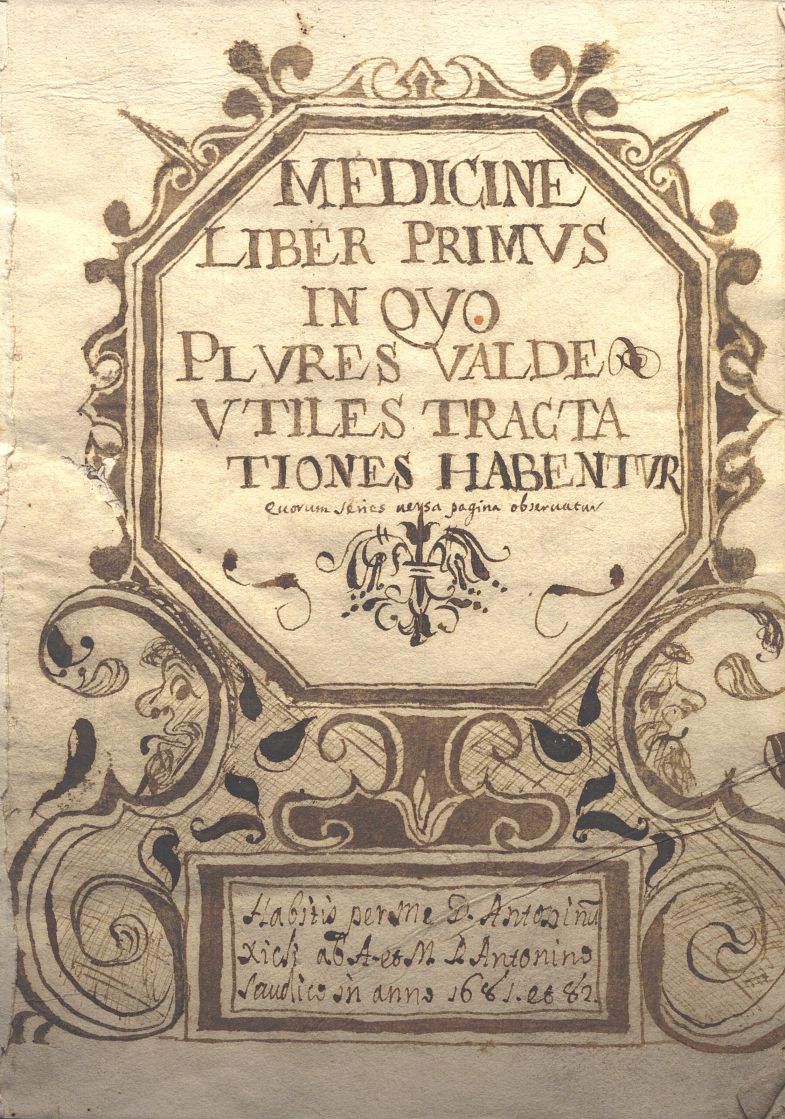 MEDICINE
LIBER PRIMVS
IN QVO
PLVRES VALDE
VTILES TRACTA
TIONES HABENTVR
Quorum series versa pagina observatur
Habitis per me D. Antoninū
ab A. et M. D. Antonino
in anno 1681. et 82.